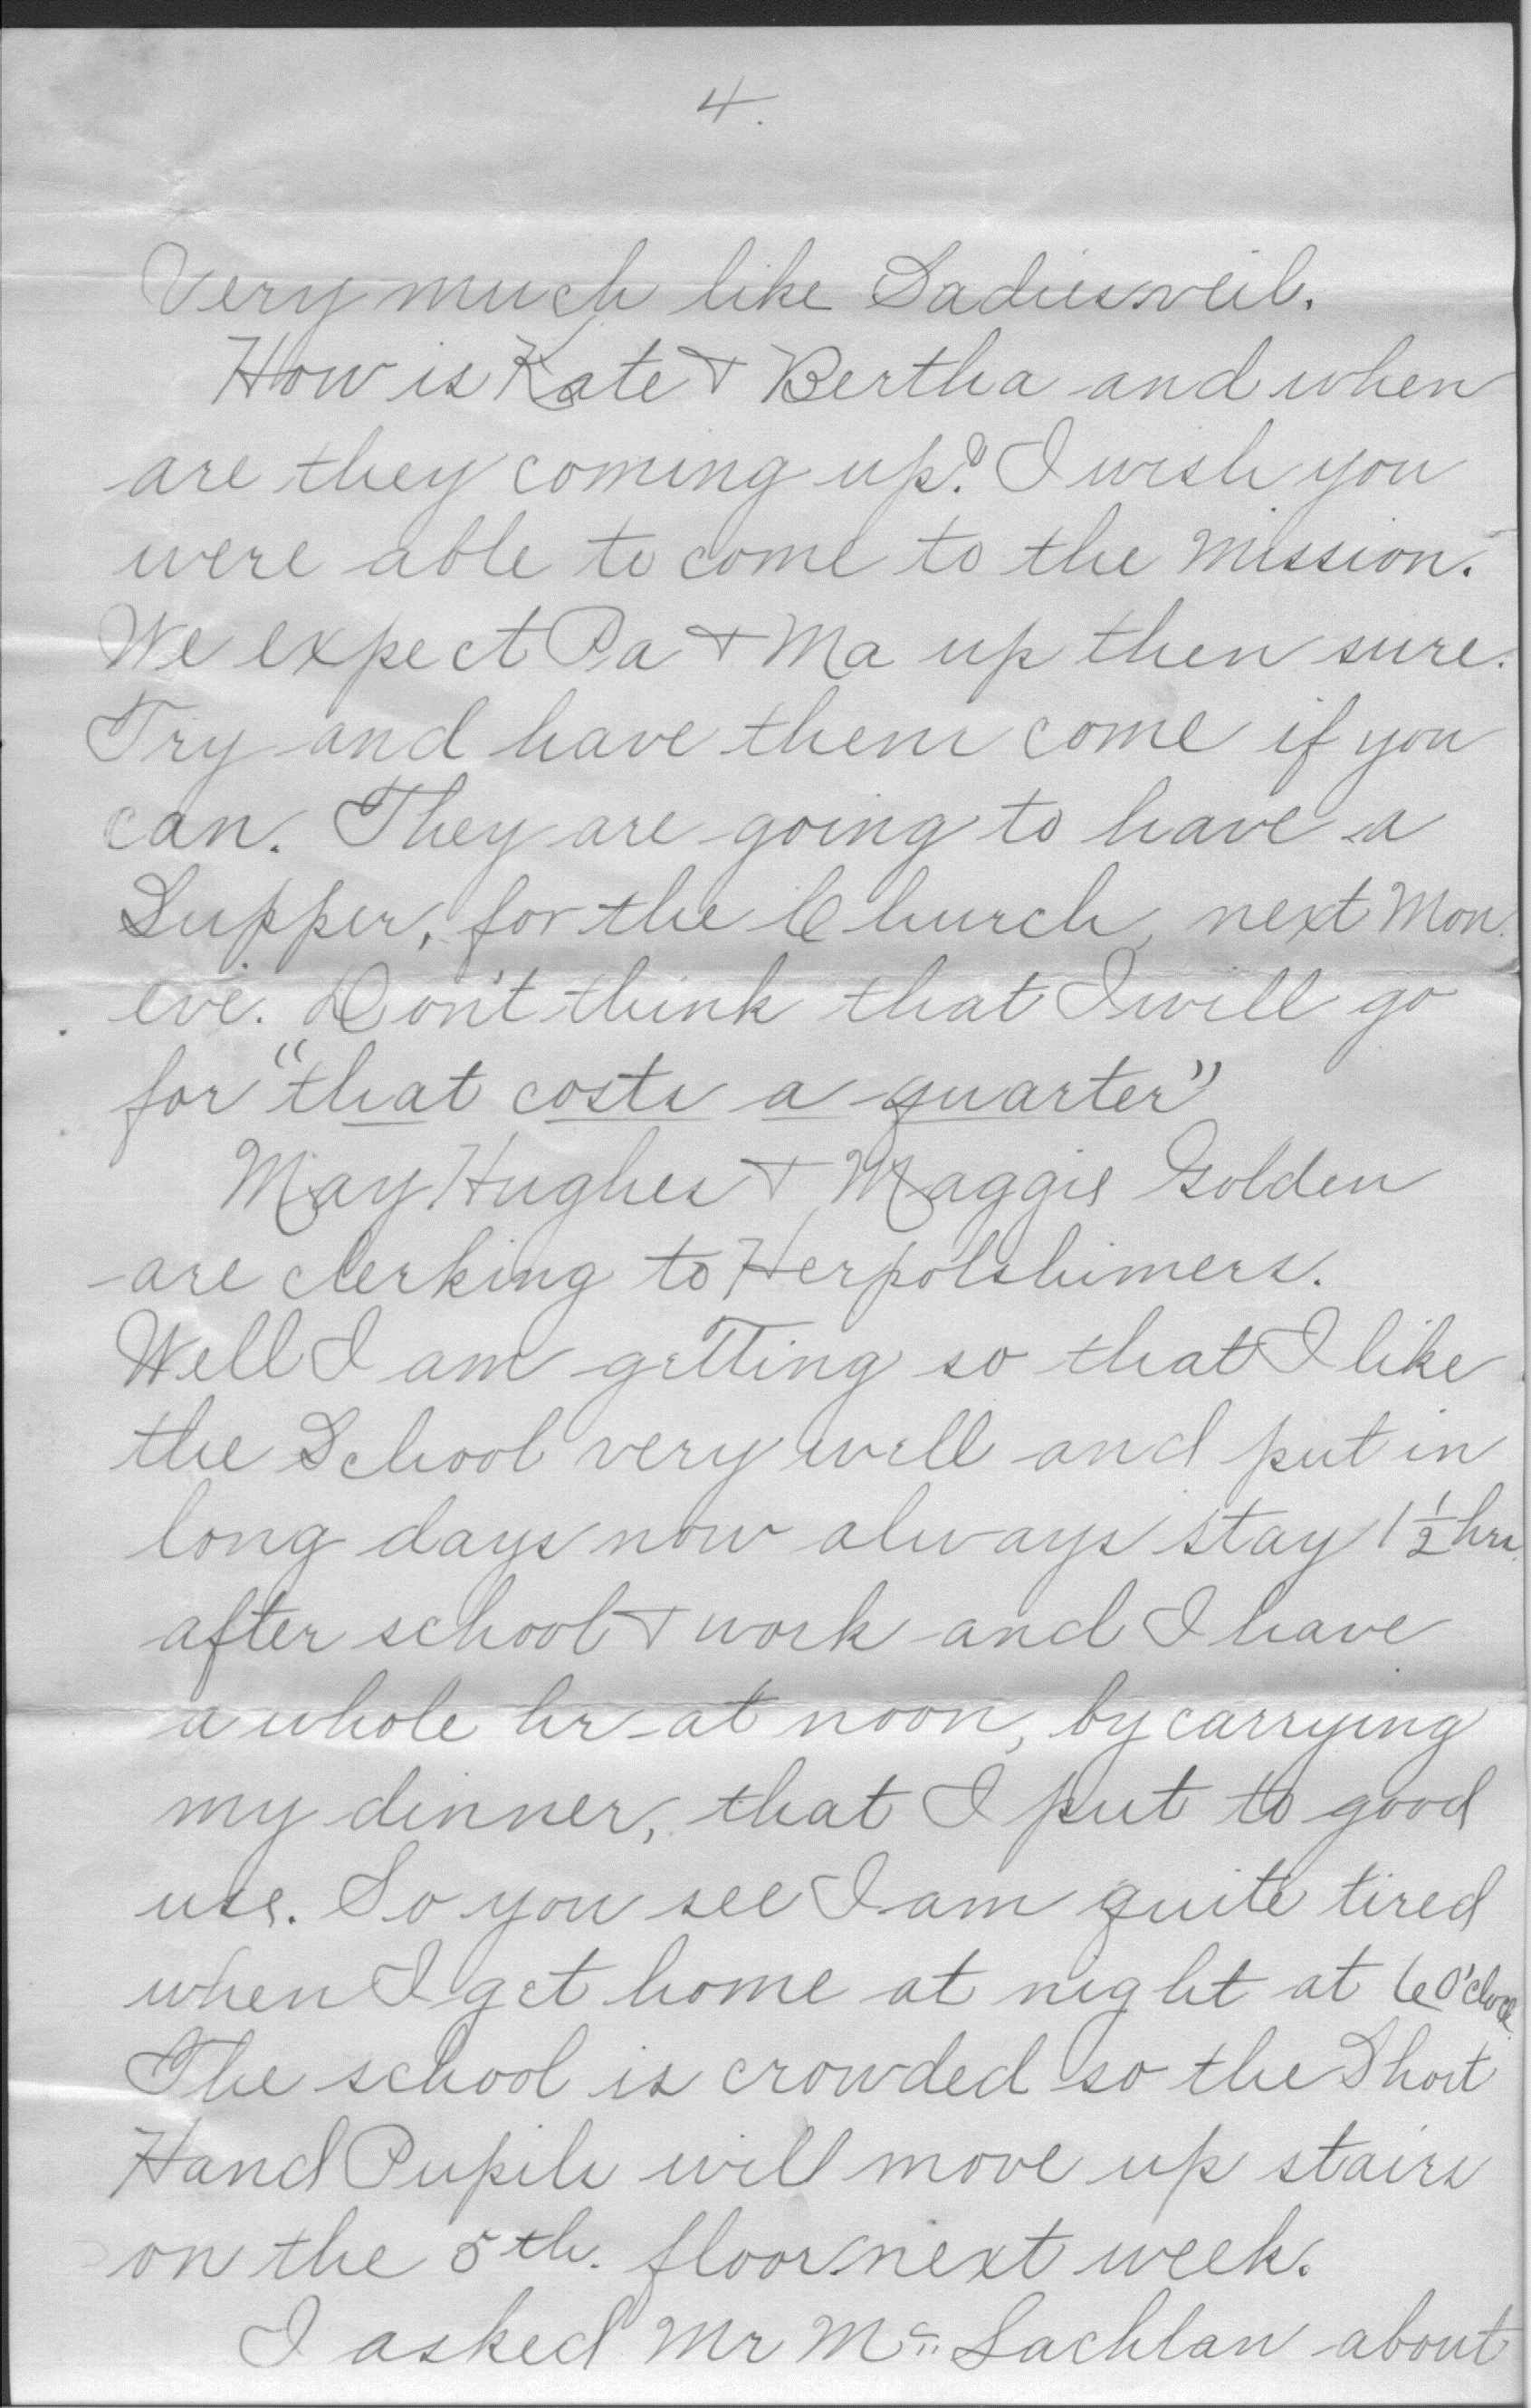 4.
Very much like Sadies veil.
How is Kate & Bertha and when
are they coming up? I wish you
were able to come to the Mission.
We expect Pa & Ma up then sure.
Try and have them come if you
can. They are going to have a
Supper, for the Church, next Mon.
eve. Don't think that I will go
for "that costs a quarter"
May Hughes & Maggie Golden
are clerking to Herpolshimers.
Well I am getting so that I like
the School very well and put in
long days now always stay 1 1/2 hrs.
after school & work and I have
a whole hr at noon, by carrying
my dinner, that I put to good
use. So you see I am quite tired
when I get home at night at 6 O'clock.
The school is crowded so the Short
Hand Pupils will move up stairs
on the 5th. floor next week.
I asked Mr Mc Lachlan about